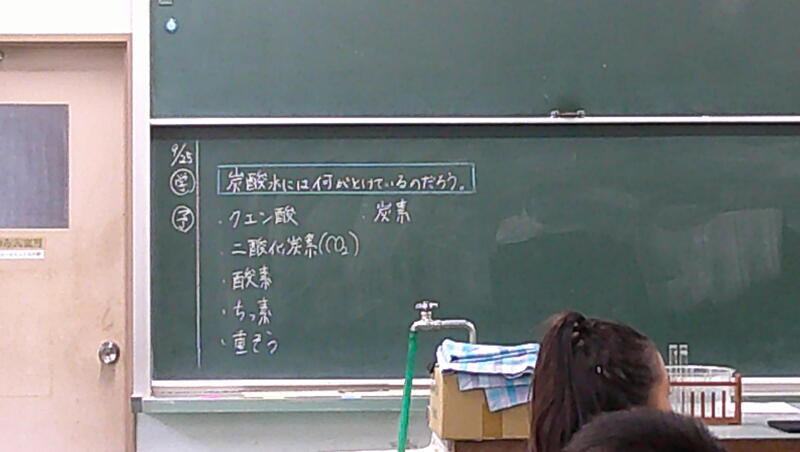 9/25
学
炭酸水には何がとけているのだろう。
予
・クエン酸 ・炭素
・二酸化炭素(CO₂)
・酸素
・ちっ素
・重そう